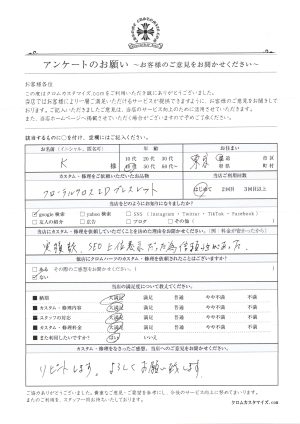 アンケートのお願い ～お客様のご意見をお聞かせください～
お客様各位
この度はクロムカスタマイズ.comをご利用いただき誠にありがとうございました。
当店ではお客様により一層ご満足いただけるサービスが提供できますように、お客様のご意見をお聞きして
おります。ご記入いただきましたご意見は、当店のサービス向上のために活用させていただきます。
また、当店ホームページへ掲載させていただく場合がございますので予めご了承ください。
該当するものに○を付けて、空欄にはご記入ください。
お名前（イニシャル、匿名可） 年齢 お住まい
K 様
10代 20代 30代
40代 50代 60代～
東京 都道府県 市区町村
カスタム・修理をご依頼いただいたお品物 当店ご利用回数
フローラルクロスIDブレスレット はじめて 2回目 3回目以上
当店をどのようにお知りになりましたか？
google検索 yahoo検索 SNS（Instagram・Twitter・TikTok・Facebook）
友人の紹介 広告 ブログ その他（ ）
当店にカスタム・修理を依頼していただくことを決めた理由をお聞かせください。（例：料金が安かったから）
実績数、SEO上位表示だった為信頼がおけた。
他店にクロムハーツのカスタム・修理を依頼されたことはございますか？
ある その際のご感想をお聞かせください（ ）
ない
当店の満足度について教えてください。
■ 納期 大満足 満足 普通 やや不満 不満
■ カスタム・修理内容 大満足 満足 普通 やや不満 不満
■ スタッフの対応 大満足 満足 普通 やや不満 不満
■ カスタム・修理料金 大満足 満足 普通 やや不満 不満
■ また利用したいですか？ はい いいえ
カスタム・修理をなさったご感想、当店へのご意見をお聞かせください。
リピートします。よろしくお願い致します。
ご協力ありがとうございました。貴重なご意見・ご要望を参考にし、今後のサービス向上に努めてまいります。
またのご利用を、スタッフ一同お待ちいたしております。
クロムカスタマイズ.com